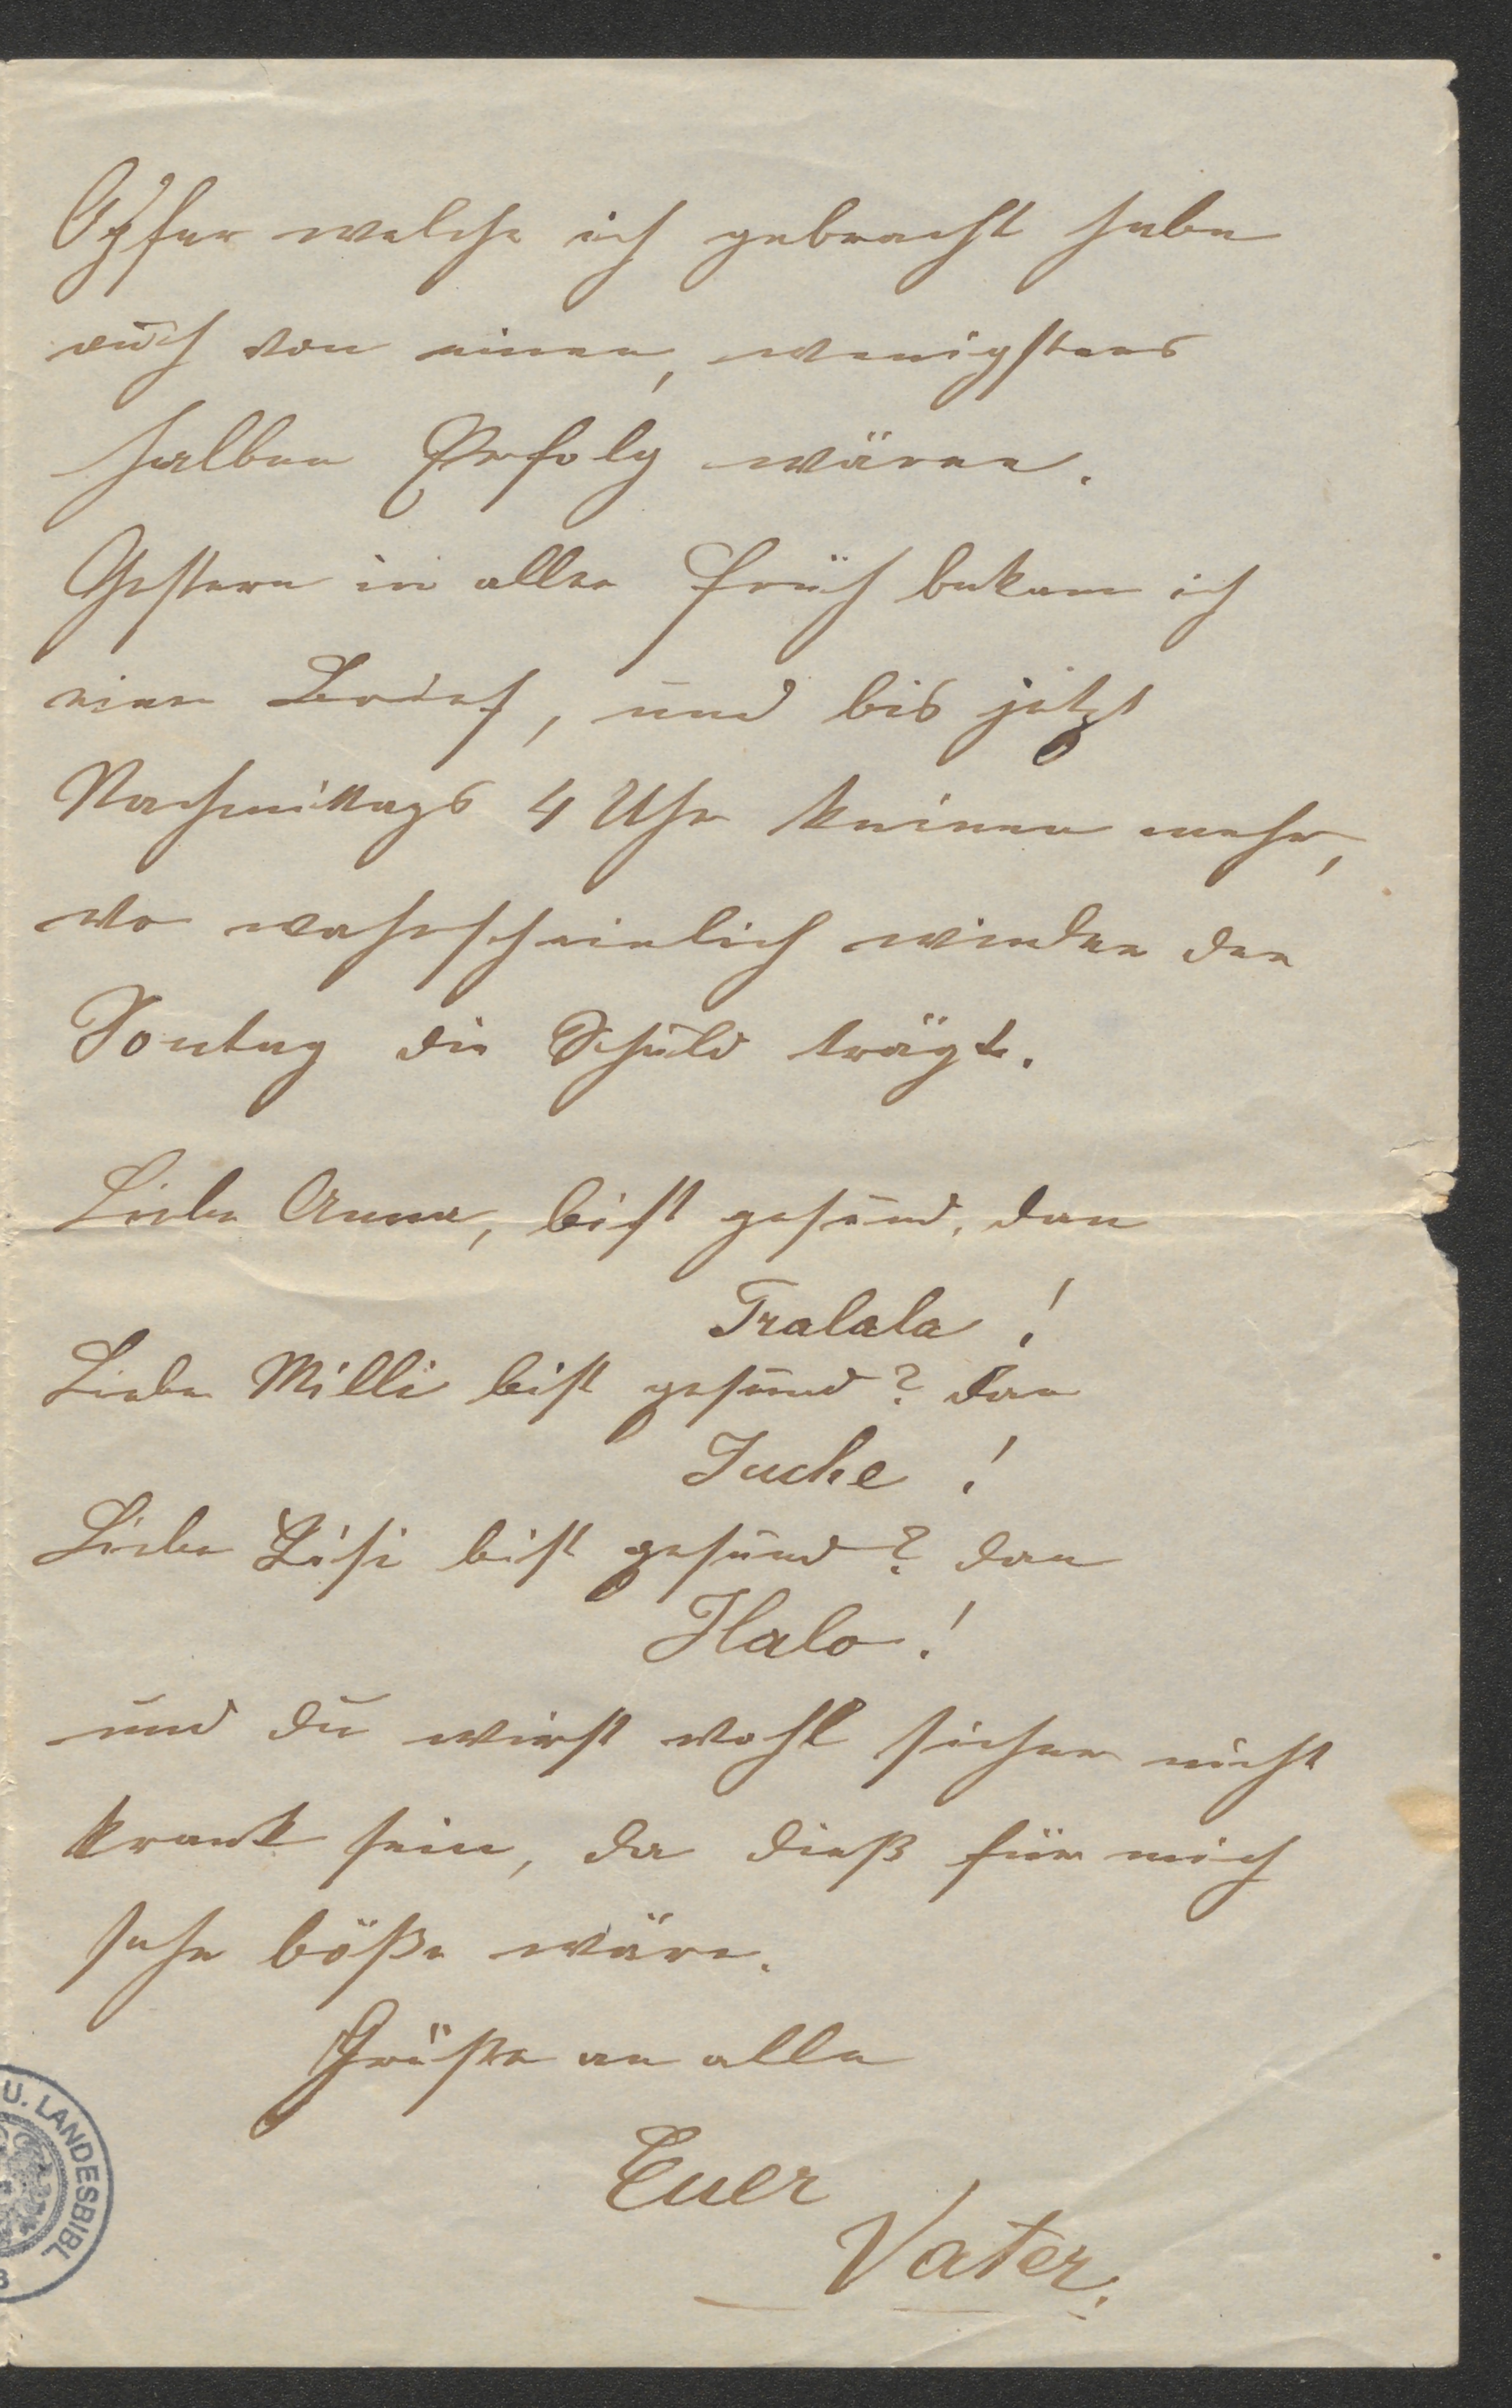 Opfer welche ich gebracht habe
auch von einen, wenigstens
halben Erfolg wären.
Gestern in aller Früh bekam ich
einen Brief, und bis jetzt
Nachmittags 4 Uhr keinen mehr,
wo wahrscheinlich wieder der
Sontag die Schuld trägt.
Liebe Anna, bist gesund, dan
Tralala !
Liebe Milli bist gesund? dan
Juche !
Liebe Lisi bist gesund? dan
Halo !
und du wirst wohl sicher nicht
krank sein, da dieß für mich
sehr böße wäre.
Grüße an alle
Euer
Vater.
U. LANDESBIBL